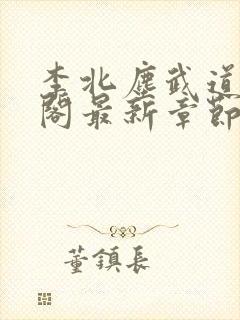 李北塵武道
閣最新章節
董鎮長